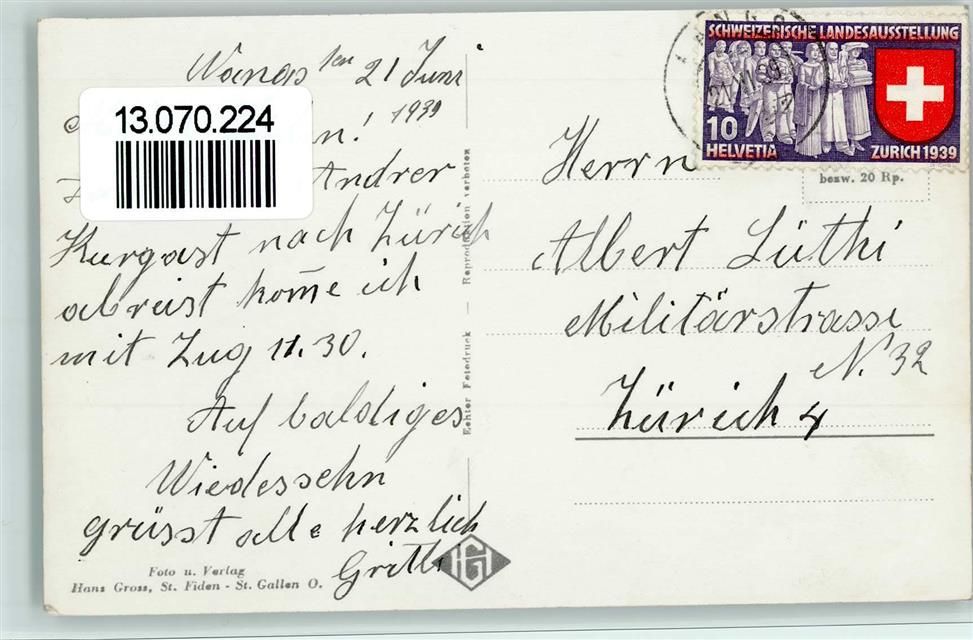 Wangs den 21 Juni
1939
13.070.224
n!
Andrer
Kurgast nach Zürich
abreist kom̅e ich
mit Zug 11.30.
Auf baldiges
Wiedessehn
grüsst alle herzlich
Gritli
Foto u. Verlag
Hans Gross, St. Fiden - St. Gallen O.
Echter Fotodruck — Reproduktion verboten
HG
WANGS
21.VI.39
SCHWEIZERISCHE LANDESAUSSTELLUNG
10
HELVETIA
ZURICH 1939
bezw. 20 Rp.
Herrn
Albert Lüthi
Militärstrasse
N. 32
Zürich 4